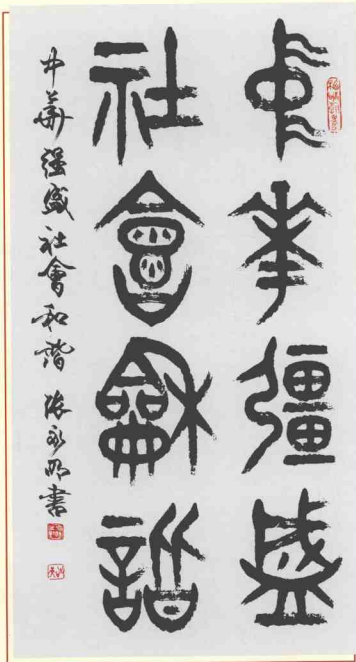 中華彊盛
社會龢諧
中華强盛社會和諧 張永明書